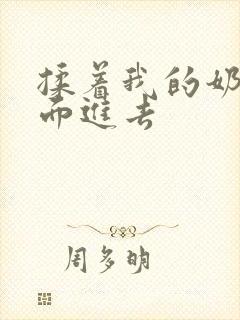 揉着我的奶
而进去
周多明